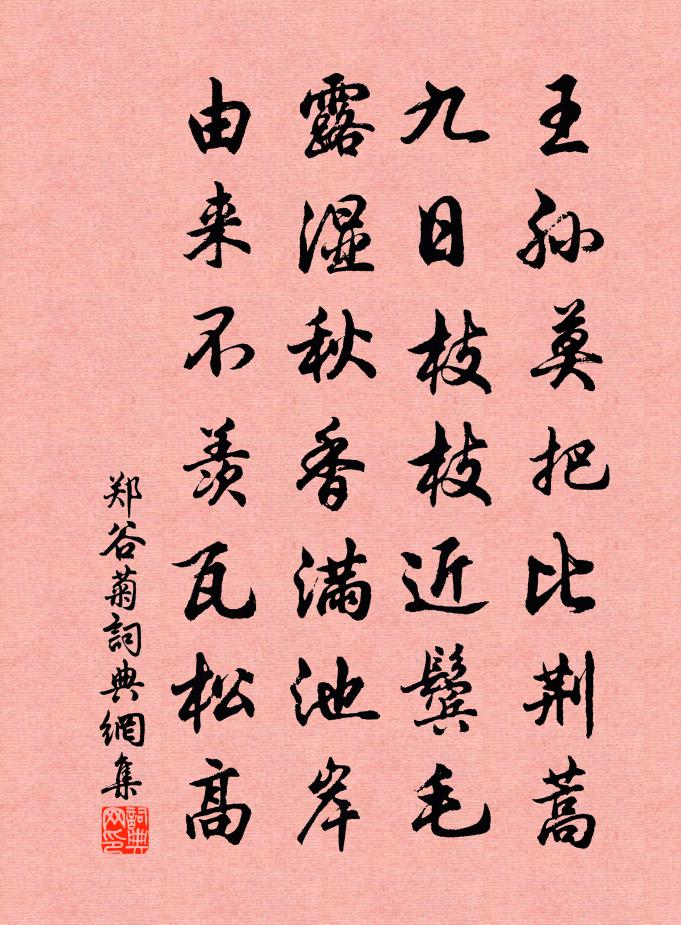 王孙莫把比荆蒿
九日枝枝近鬓毛
露湿秋香满池岸
由来不羡瓦松高
郑谷菊詞典網集
詞典网印